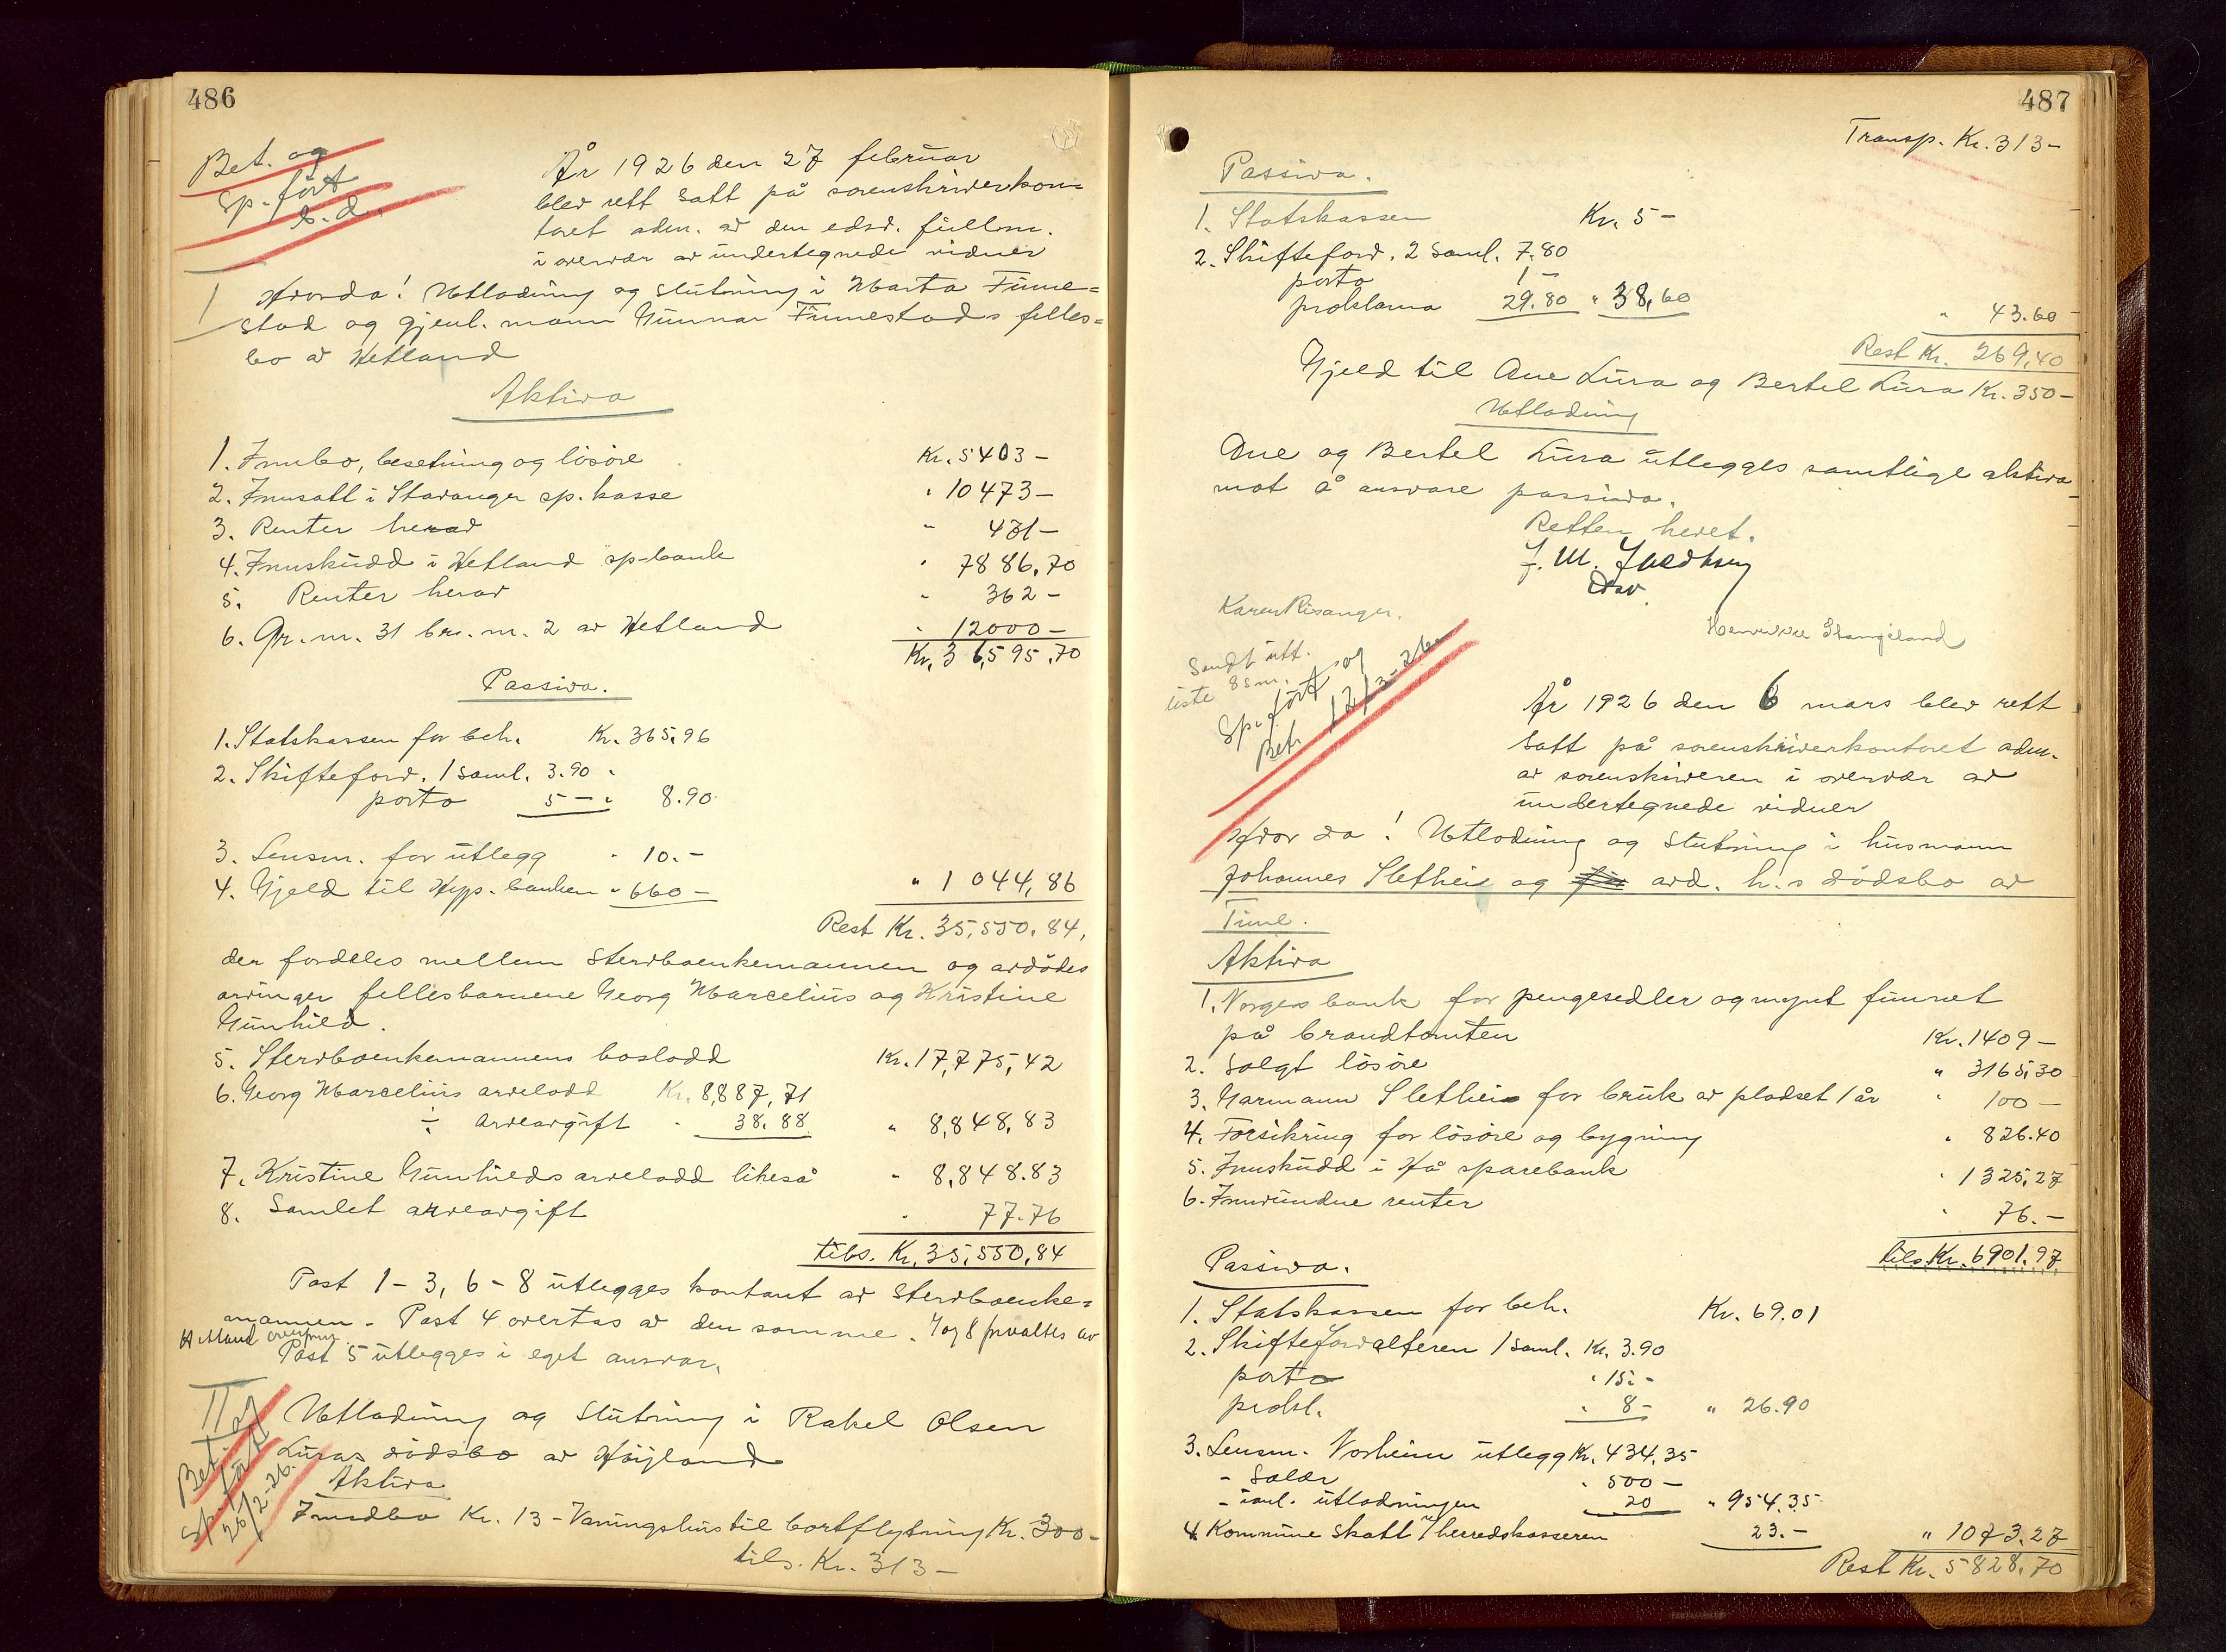 486
Bet. og
Sp. ført
s. d.
År 1926 den 27 februar
blev rett satt på sorenskriverkon=
toret adm. av den edsv. fullm.
i overvær av undertegnede vidner
I Hvorda! Utlodning og slutning i Marta Finne=
stad og gjenl. mann Gunnar Finnestads felles=
bo av Hetland
Aktiva
1. Innbo, besetning og løsøre Kr. 5403 –
2. Innsatt i Stavanger sp. kasse " 10473 –
3. Renter herav " 471 –
4. Innskudd i Hetland sp-bank " 7886,70
5. Renter herav " 362 –
6. Gr. nr. 31 br. nr. 2 av Hetland " 12000 –
Kr. 36,595.70
Passiva.
1. Statskassen for beh. Kr. 365,96
2. Skifteford. 1 saml. 3.90 "
porto 5 – " 8.90
3. Lensm. for utlegg " 10. –
4. Gjeld til Hyp. banken " 660 – " 1 044,86
Rest Kr. 35,550,84,
der fordeles mellem stervboenkemannen og avdødes
arvinger fellesbarnene Georg Marcelius og Kristine
Gunhild.
5. Stervboenkemannens boslodd Kr. 17,775,42
6. Georg Marcelius arvelodd Kr. 8,887,71
÷ Arveavgift " 38.88 " 8,848,83
7. Kristine Gunhilds arvelodd likeså " 8,848.83
8. Samlet arveavgift " 77.76
tils. Kr. 35,550,84
Post 1 – 3, 6 – 8 utlegges kontant av stervboenke=
mannen. Post 4 overtas av den samme. 7 og 8 forvaltes av
Hetland overform.
Post 5 utlegges i eget ansvar.
II Utlodning og slutning i Rakel Olsen
Luras dødsbo av Høiland
Bet. og
Sp. ført
26/2-26.
Aktiva
Innbo Kr. 13 – Våningshus til bortflytning Kr. 300 –
tils. Kr. 313 –
487
Transp. Kr. 313 –
Passiva.
1. Statskassen Kr. 5 –
2. Skifteford. 2 saml. 7.80
porto 1 –
proklama 29.80 " 38,60 " 43.60
Rest Kr. 269,40
Gjeld til Ane Lura og Bertel Lura Kr. 350 –
Utlodning
Ane og Bertel Lura utlegges samtlige aktiva
mot å ansvare passiva.
Retten hevet.
Karen Risanger.
Henrikke Stangeland
Sendt utt.
liste 8 sm.
Sp. ført og
Bet. 12/3-26
År 1926 den 6 mars blev rett
satt på sorenskriverkontoret adm.
av sorenskriveren i overvær av
undertegnede vidner
Hvor da! Utlodning og slutning i husmann
Johannes Sletheis og avd. h.s dødsbo av
Time.
Aktiva
1. Norges bank for pengesedler og mynt funnet
på brandtomten Kr. 1409 –
2. Solgt løsøre " 3165,30
3. Garmann Slethei for bruk av pladset 1 år " 100 –
4. Forsikring for løsøre og bygning " 826.40
5. Innskudd i Hå sparebank " 1325,27
6. Innvundne renter " 76. –
tils Kr. 6901.97
Passiva.
1. Statskassen for beh. Kr. 69.01
2. Skifteforvalteren 1 saml. Kr. 3.90
porto " 15. –
prokl. " 8 – " 26.90
3. Lensm. Norheim utlegg Kr. 434,35
– Salær " 500 –
– innl. utlodningen " 20 " 954.35
4. Kommune skatt v/ herredskasseren 23. – " 1073.27
Rest Kr. 5828.70